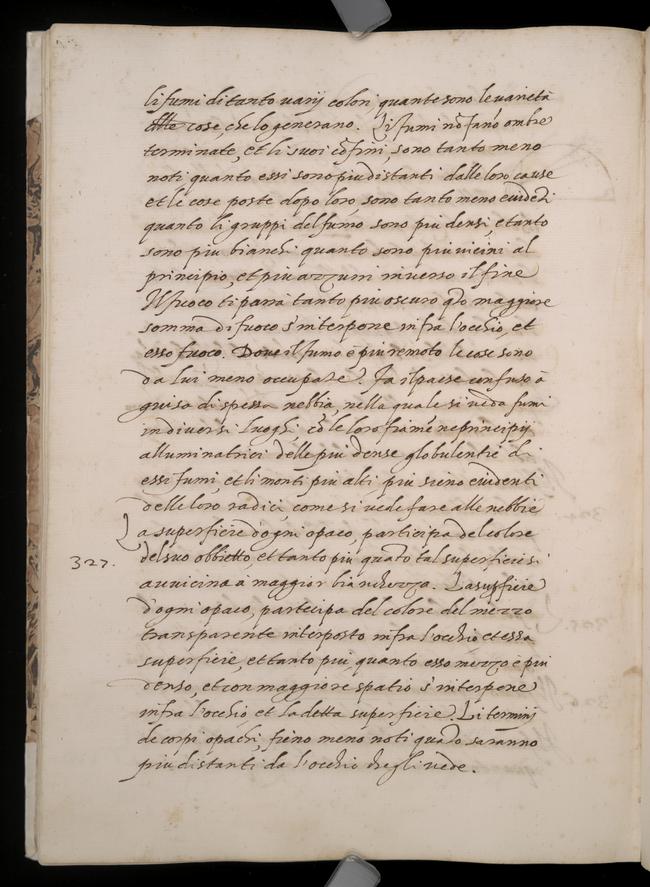 li fumi di tanto varij colori quante sono le varietà
delle cose, che lo generano. Li fumi nõ fanõ ombre
terminate, et li suoi cõfini, sono tanto meno
noti quanto essi sono piu distanti dalle loro cause
et le cose poste dopo loro, sono tanto meno euidẽti
quanto li gruppi del fumo sono piu densi, e tanto
sono piu bianchi quanto sono piu vicini al
principio, et piu azzurri inverso il fine
Il fuoco ti parrà tanto piu oscuro qto maggiore
somma di fuoco s'interpone infra l'occhio, et
esso fuoco. Dove il fumo è piu remoto le cose sono
da lui meno occupate. Fa il paese confuso à
guisa di spessa nebbia, nella quale si veda fumi
in diversi luoghi, cõ le loro fiame ne principij
alluminatrici delle piu dense globulentie di
essi fumi, et li monti piu alti piu sieno euidenti
delle loro radici, come si vede fare alle nebbie
La superficie d'ogni opaco, participa del colore
327. del suo obbietto et tanto piu quãto tal superficie si
auuicina à maggior bianchezza. La supficie
d'ogni opaco, partecipa del colore del mezzo
transparente interposto infra l'occhio et essa
superficie, et tanto piu quanto esso mezzo è piu
denso, et con maggiore spatio s'interpone
infra l'occhio et la detta superficie. Li termini
de corpi opachi, fieno meno noti quãto saranno
piu distanti da l'occhio che gli vede.